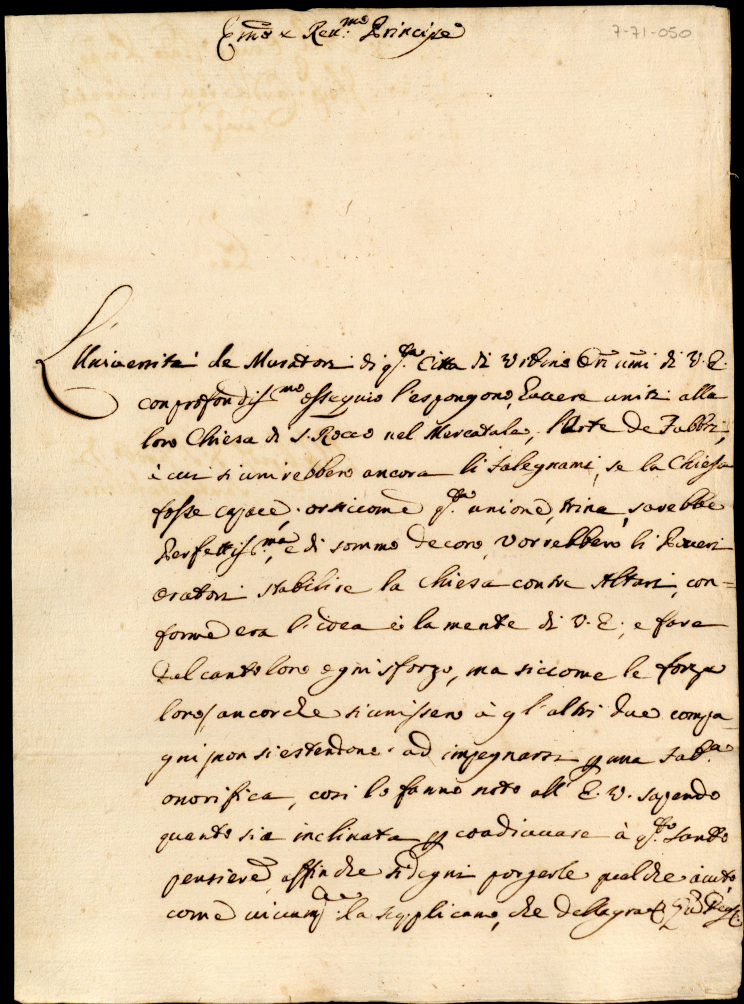 7-71-050
Em.mo e Reu.mo Principe
L'Uniuersità de Muratori di q.sta Città di Vrbino Or.i umi di V. E.
con profondiss.mo ossequio l'espongono, hauere uniti alla
loro Chiesa di S. Rocco nel Mercatale, l'Arte de Fabbri,
à cui si unirebbero ancora li falegnami, se la Chiesa
fosse capace. or siccome q.sta unione, trina, sarebbe
Perfettiss.ma, e di sommo decoro, vorrebbero li Poueri
Oratori stabilire la Chiesa con tre Altari, con=
forme era l'idea e la mente di V. E., e fare
dal canto loro ogni sforzo, ma siccome le forze
loro, ancorche si unissero à gl'altri due compa-
gni non si estendono ad impegnarsi p una fab.a
onorifica, così lo fanno noto all' E. V. sapendo
quanto sia inclinata p coadiuuare à q.sto santo
pensiere, affinche si degni porgerle qualche aiuto,
come uiuam.te la supplicano, che della gra